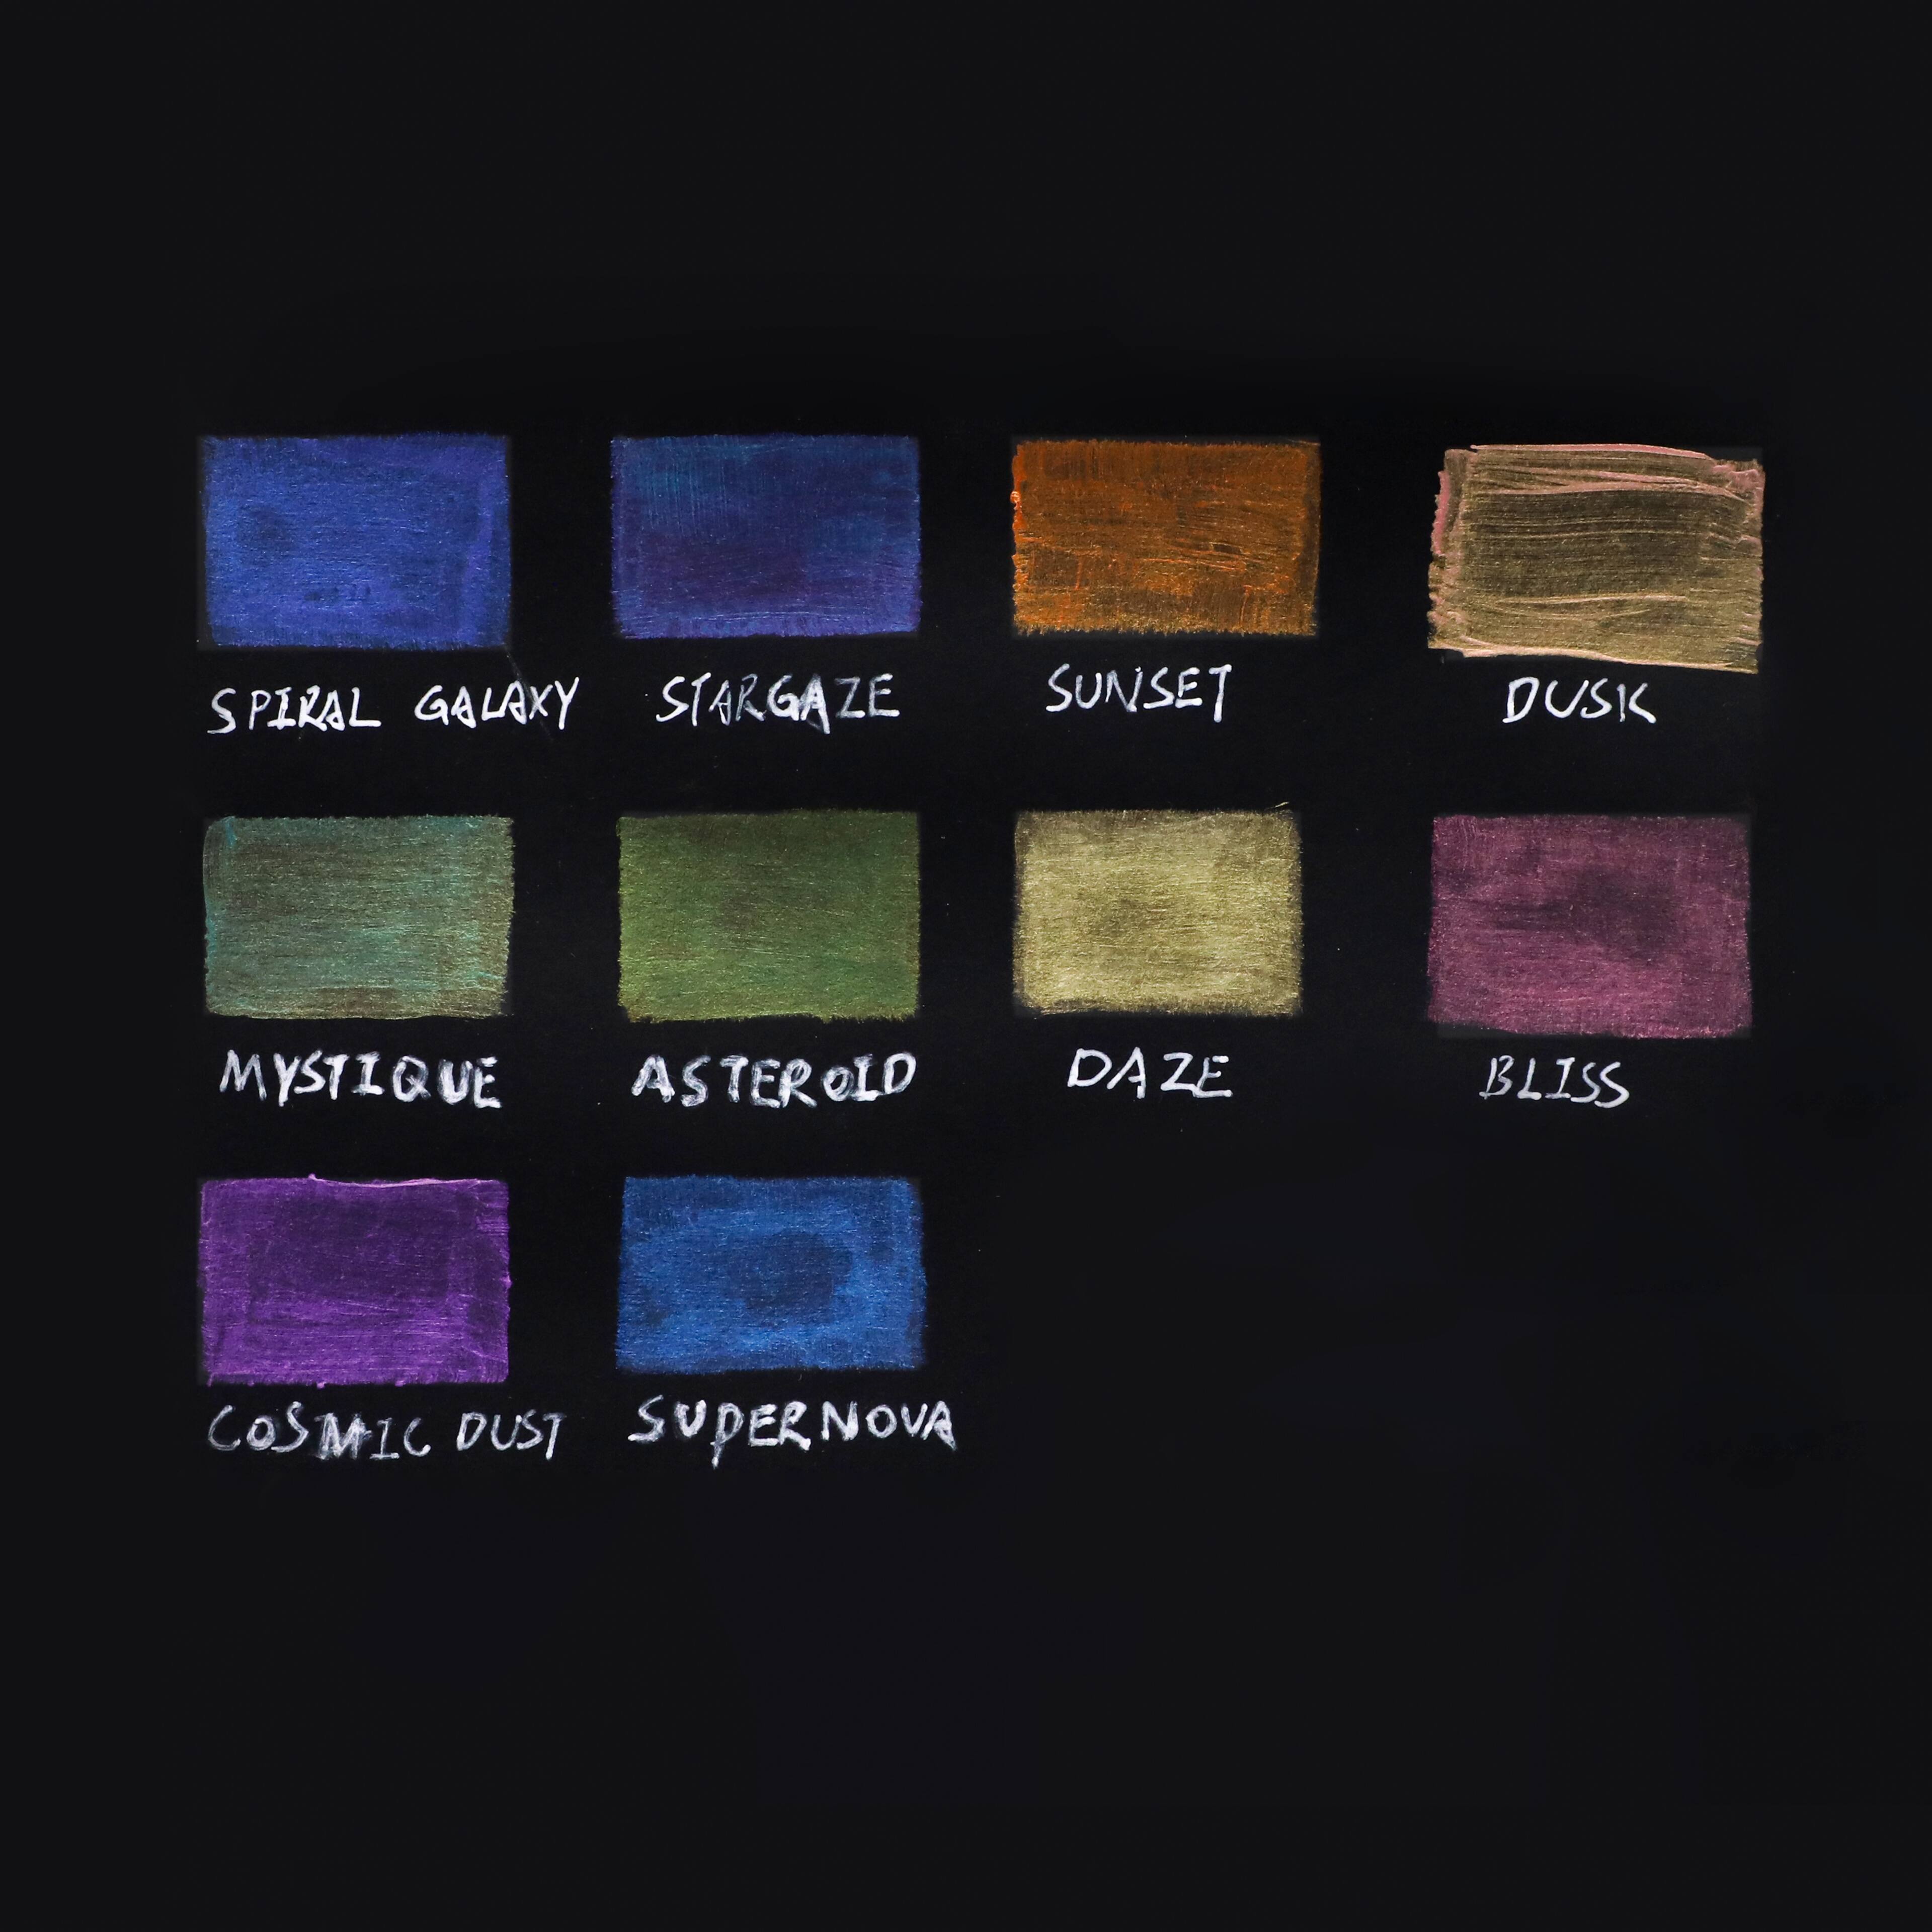 SPIRAL GALAXY
STARGAZE
SUNSET
DUSK
MYSTIQUE
ASTEROID
DAZE
BLISS
COSMIC DUST
SUPERNOVA